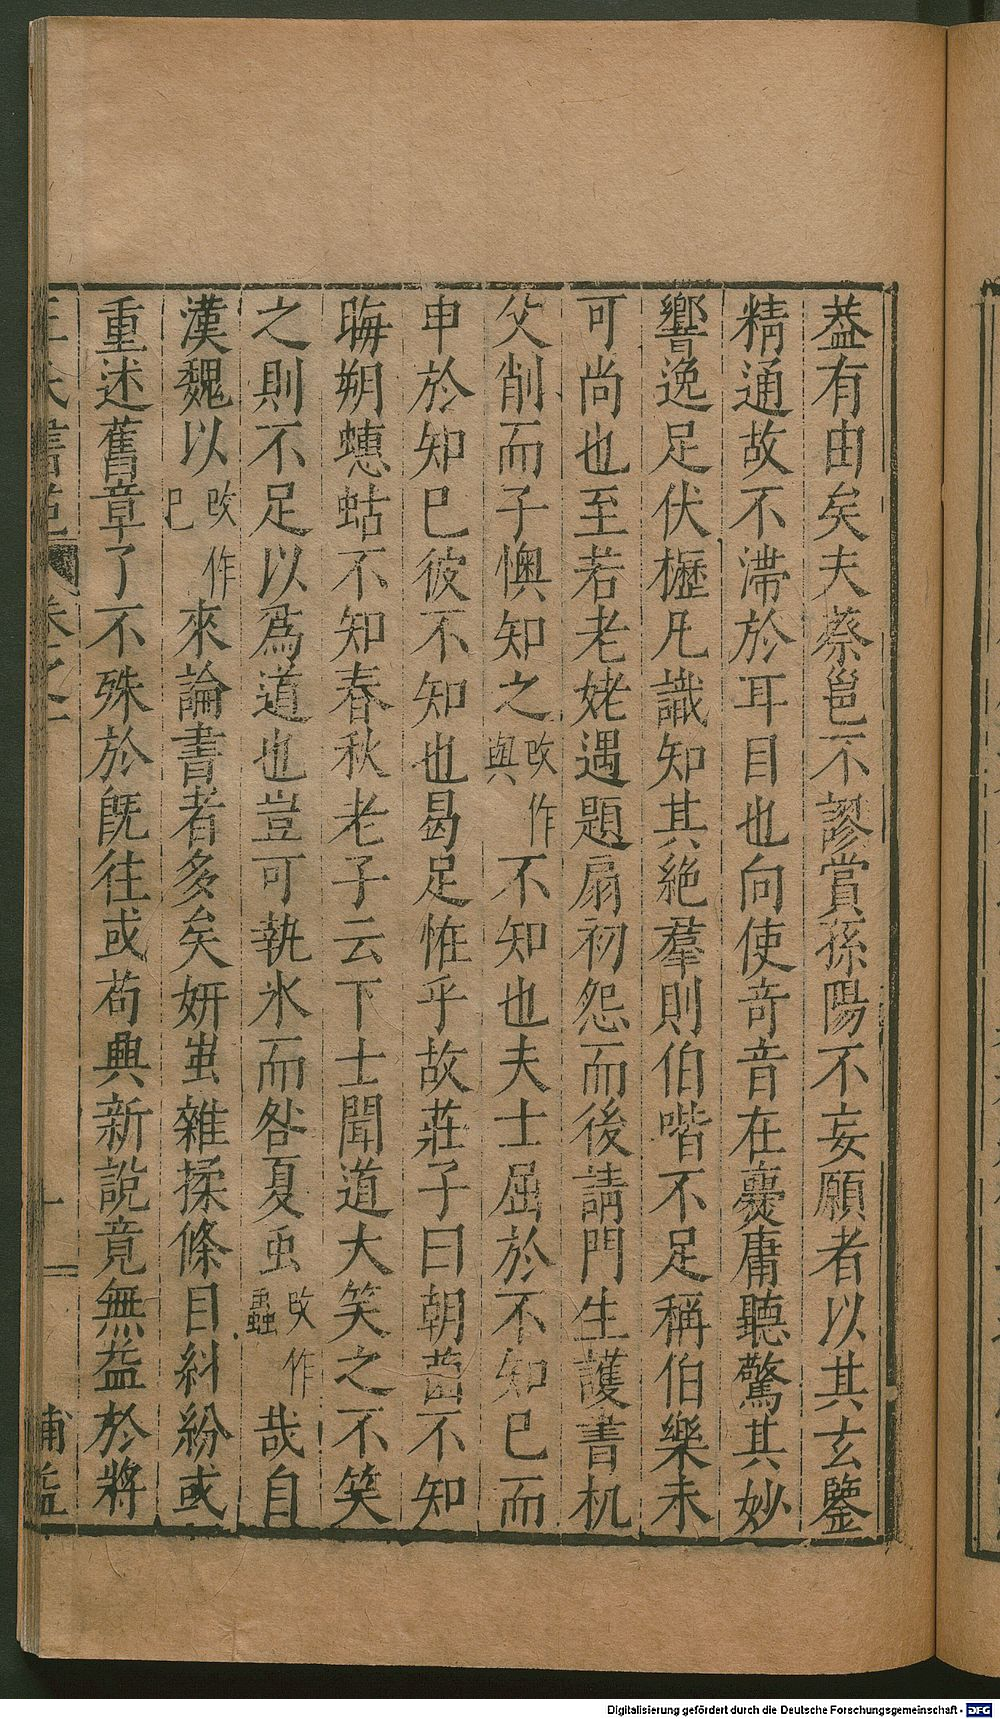 葢有由矣夫蔡邕不謬賞孫陽不妄願者以其玄鑒
精通故不滯於耳目也向使奇音在爨庸聽驚其妙
響逸足伏櫪凡識知其絶羣則伯喈不足稱伯樂未
可尚也至若老姥遇題扇初怨而後請門生護書机
父削而子懊知之攺作與不知也夫士屈於不知已而
申於知巳彼不知也曷足恠乎故莊子曰朝菌不知
晦朔蟪蛄不知春秋老子云下士聞道大笑之不笑
之則不足以爲道也豈可執氷而咎夏虫攺作蟲哉自
漢魏以攺作巳來論書者多矣妍蚩雜揉條目糾紛或
重述舊章了不殊於旣往或茍興新說竟無益於將
王氏書苑 卷之一 十二 補益
Digitalisierung gefördert durch die Deutsche Forschungsgemeinschaft - DFG